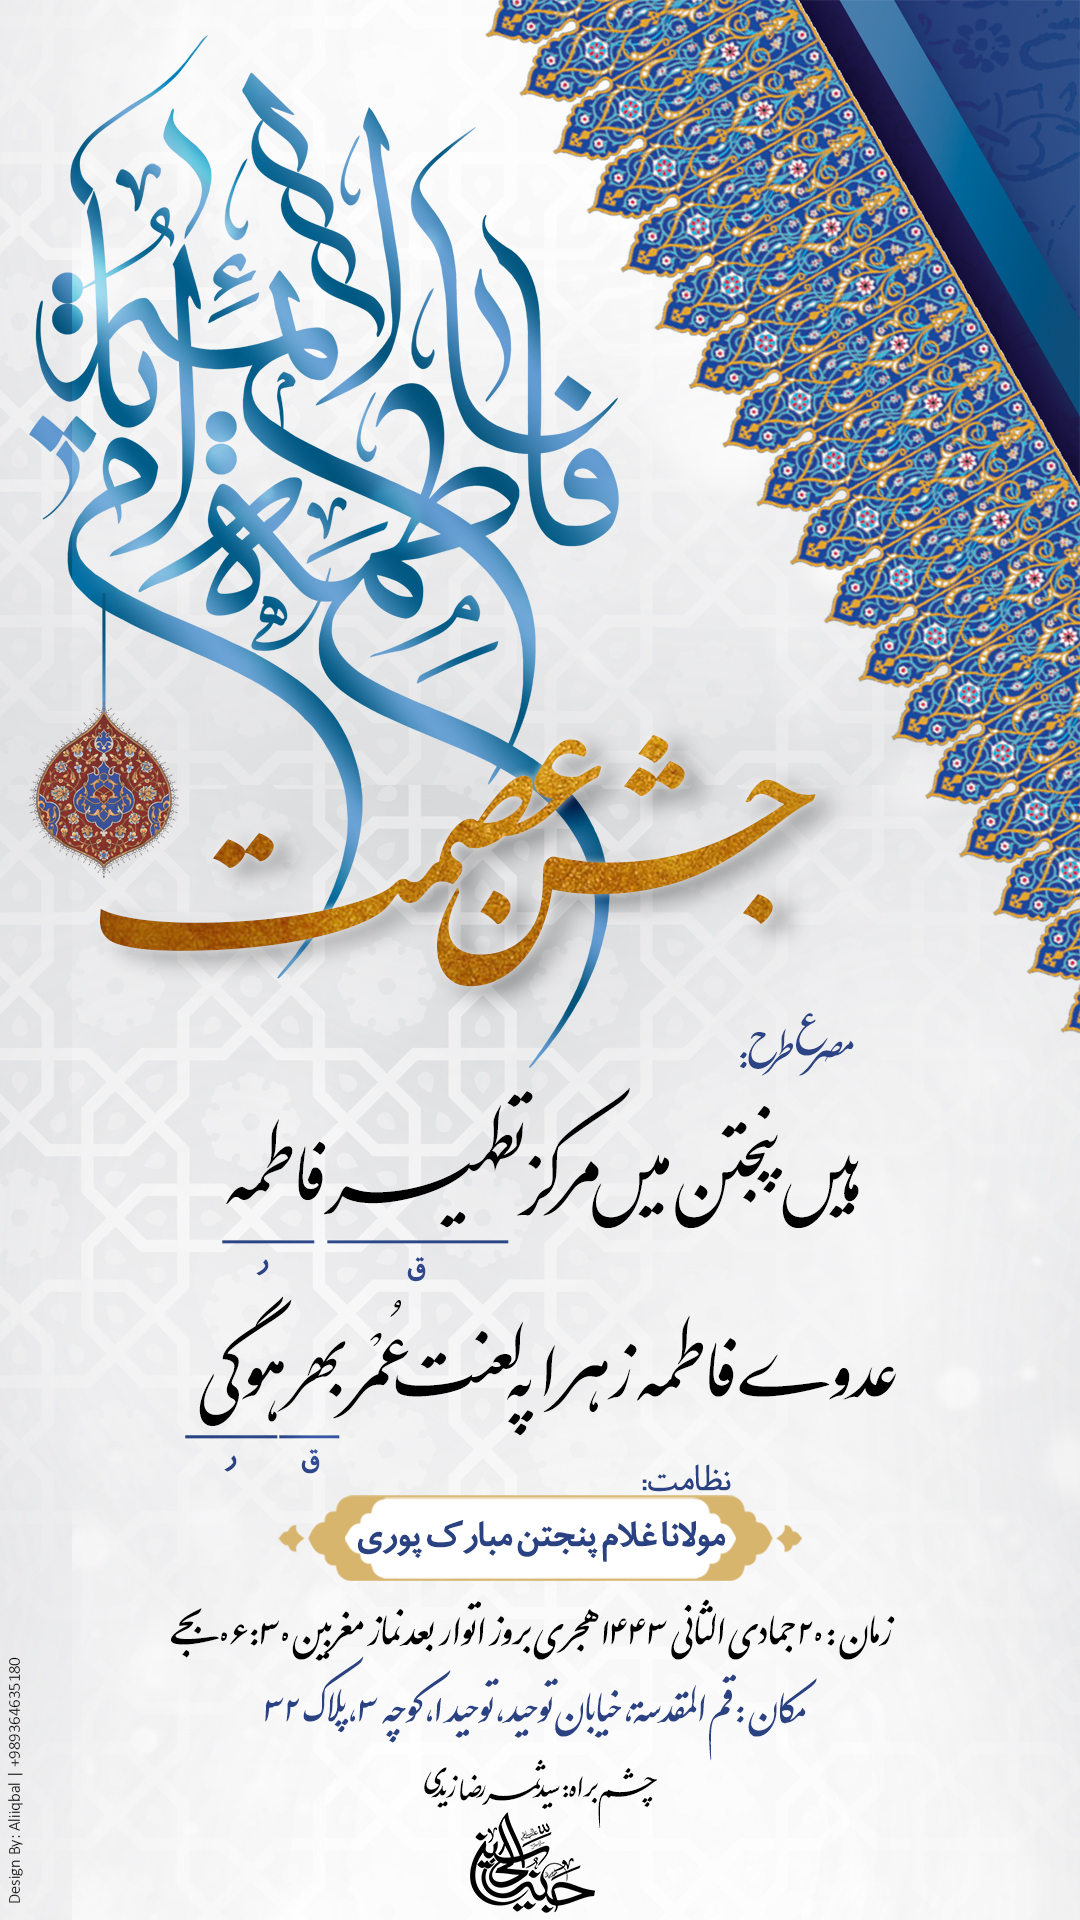 جشن عصمت
مصرع طرح:
ہیں پنجتن میں مرکز تطہیر فاطمہ
ق ر
عدوے فاطمہ زہرا پہ لعنت عُمْر بھر ہوگی
ق ر
نظامت:
مولانا غلام پنجتن مبارک پوری
زمان : ۲۰ جمادی الثانی ۱۴۴۳ هجری بروز اتوار بعد نماز مغربین ۰۶:۳۰ بجے
مکان : قم المقدسة، خیابان توحید، توحید ۱، کوچه ۳، پلاک ۳۲
چشم براہ: سید ثمر رضا زیدی
Design By: Aliiqbal | +989364635180